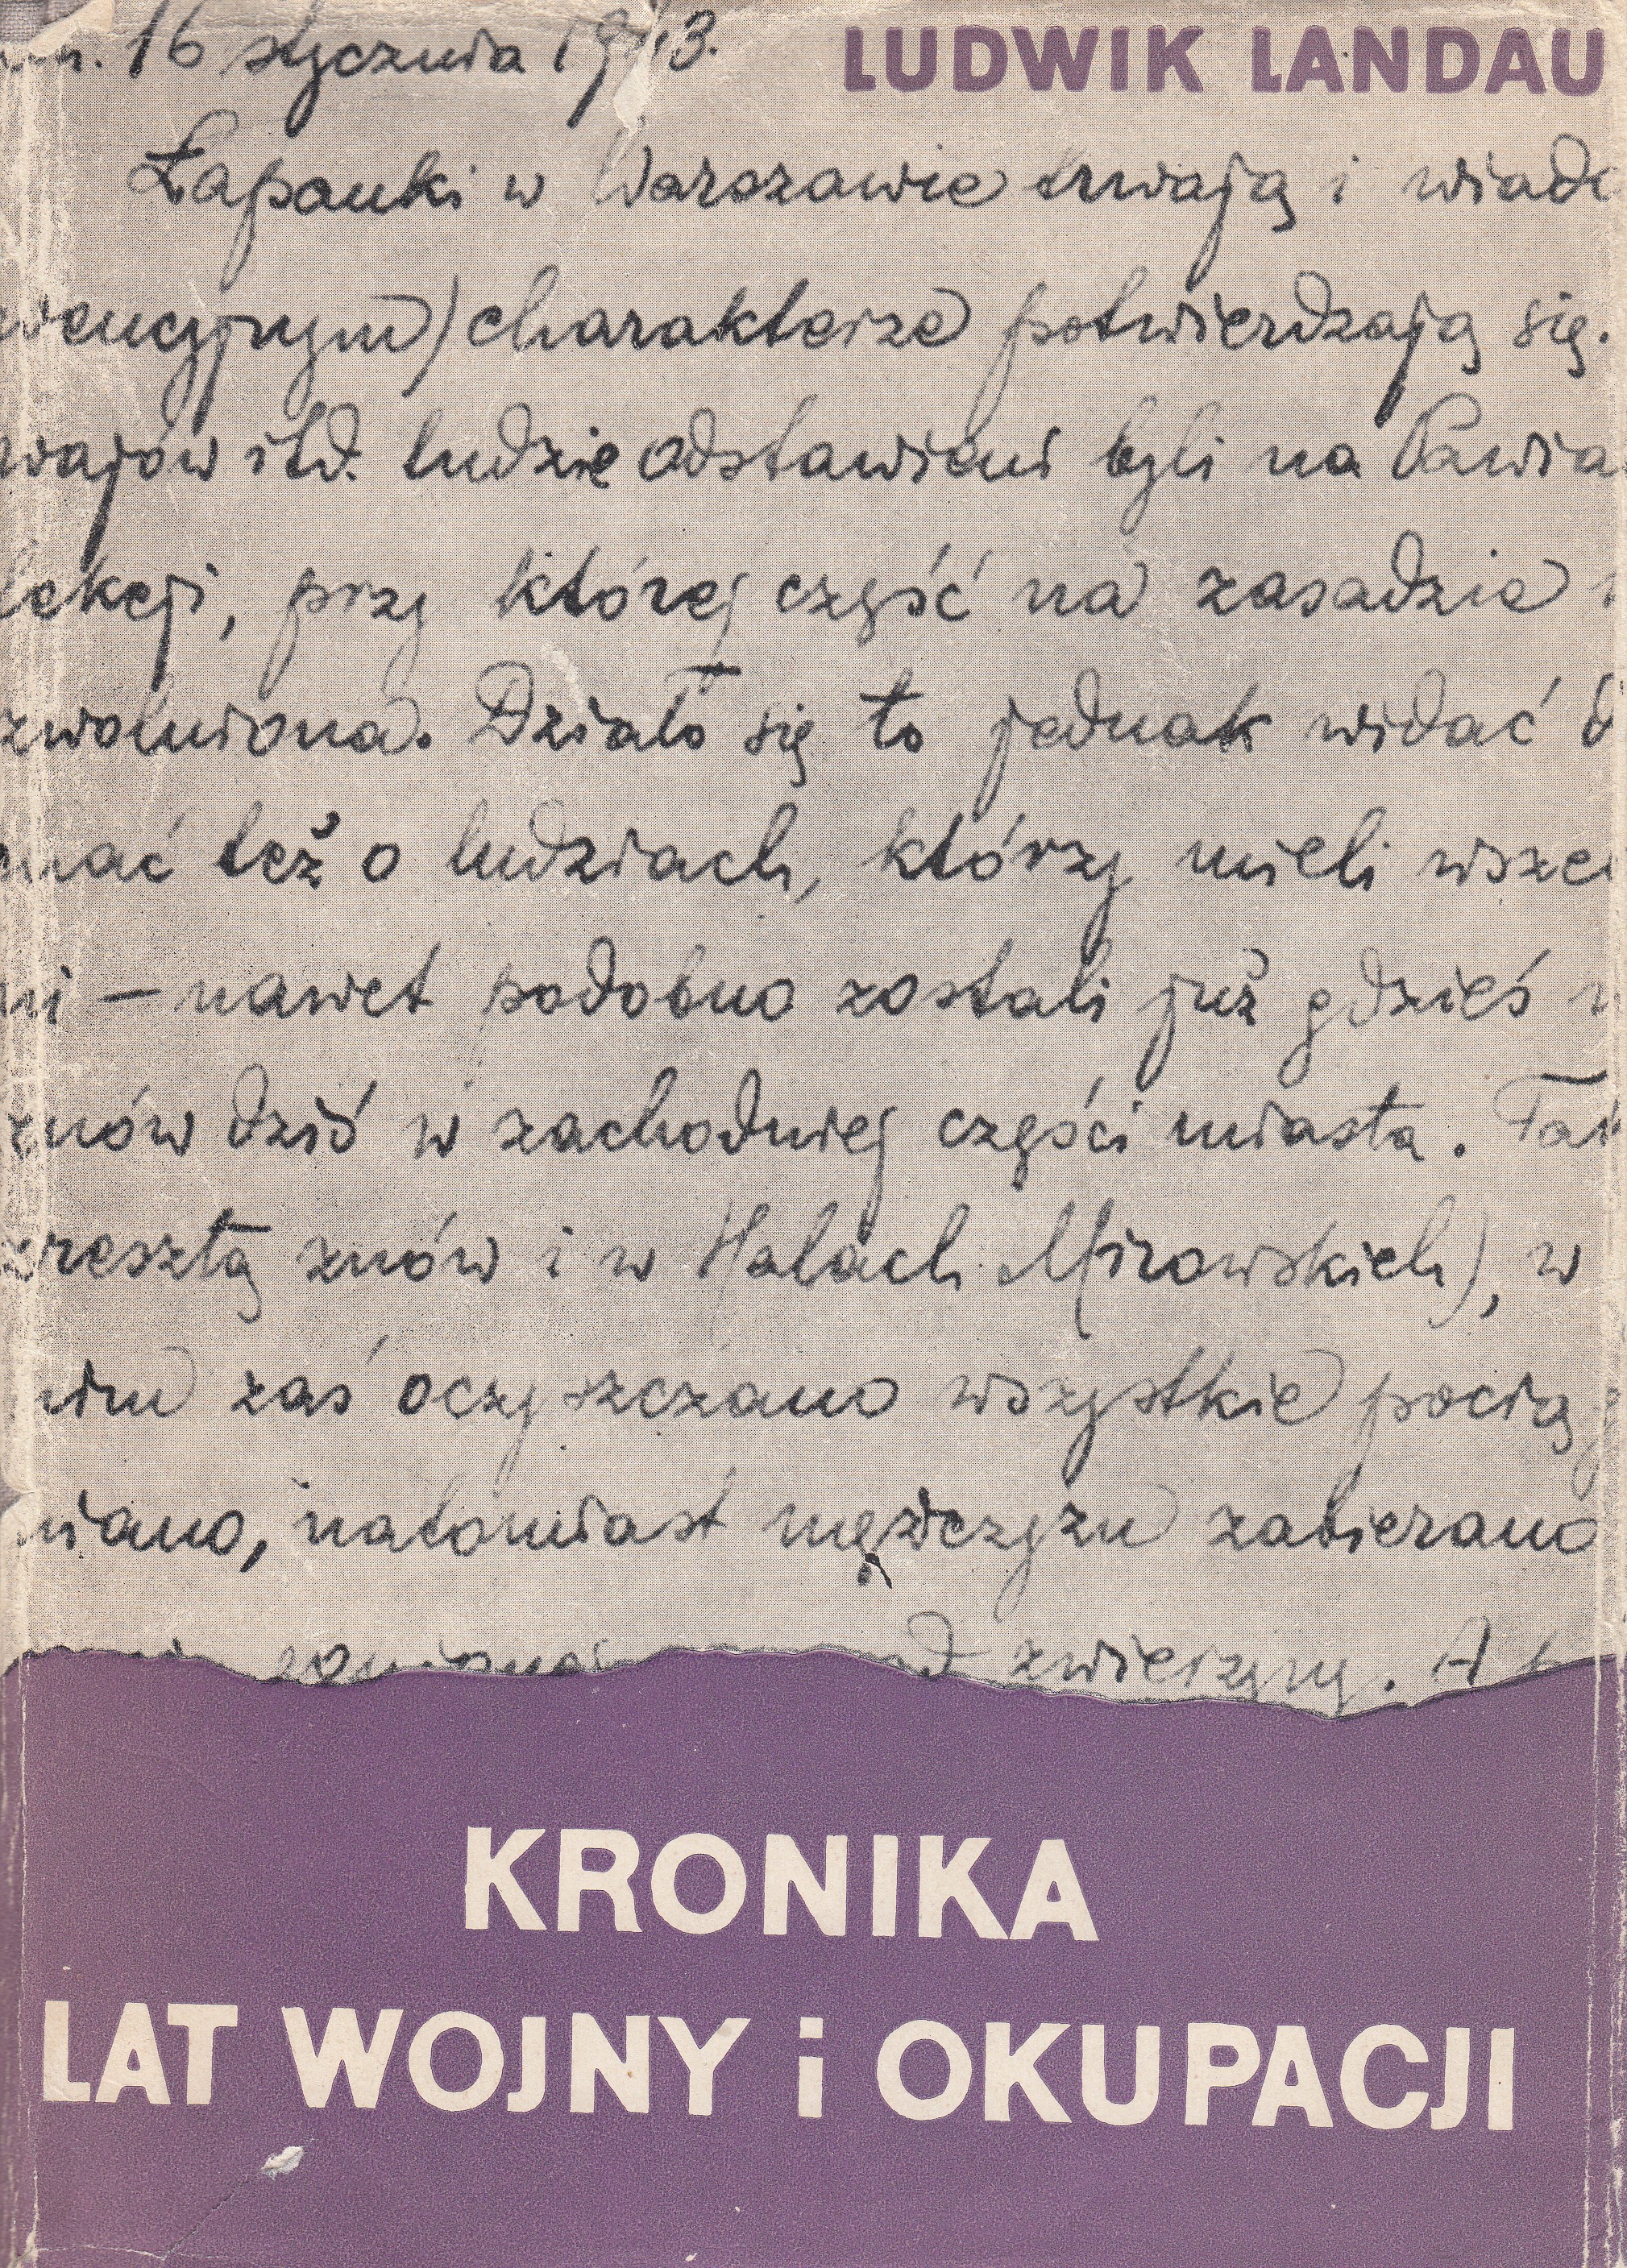 16 stycznia 1943.
LUDWIK LANDAU
Łapanki w Warszawie trwają i wiado
wencyjnym) charakterze potwierdzają się.
wajów itd. ludzie odstawieni byli na Pawia
lekcji, przy której część na zasadzie
zwolniona. Działo się to jednak widać d
mać też o ludziach, którzy mieli wszel
ni – nawet podobno zostali już gdzieś w
znów dziś w zachodniej części miasta. Tak
zresztą znów i w Halach Mirowskich), w
nim zaś oczyszczano wszystkie pocią
niano, natomiast mężczyzn zabierano
zwierzyny. A
KRONIKA
LAT WOJNY i OKUPACJI